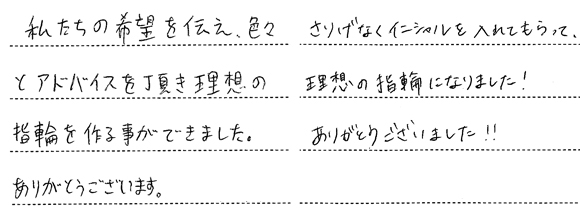 私たちの希望を伝え、色々
とアドバイスを頂き理想の
指輪を作る事ができました。
ありがとうございます。
さりげなくイニシャルを入れてもらって、
理想の指輪になりました!
ありがとうございました!!